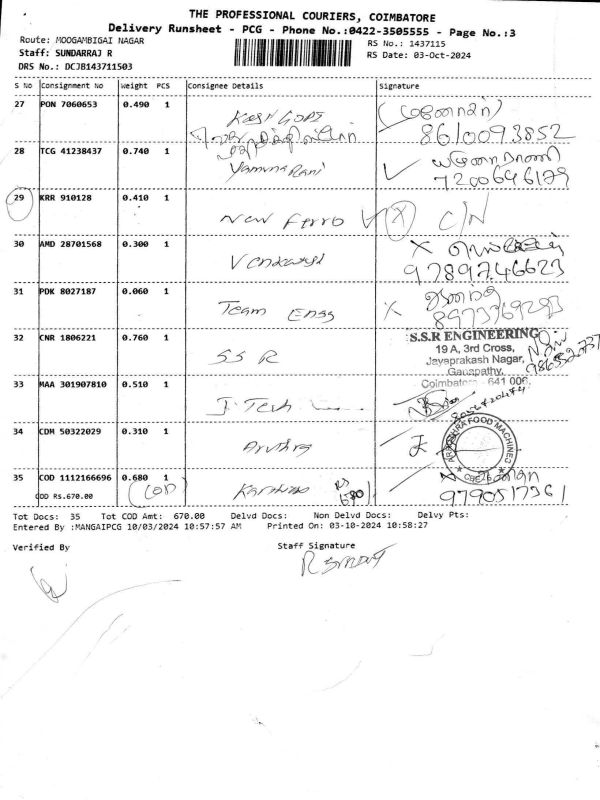 THE PROFESSIONAL COURIERS, COIMBATORE
Delivery Runsheet - PCG - Phone No.:0422-3505555 - Page No.:3
Route: MOOGAMBIGAI NAGAR RS No.: 1437115
Staff: SUNDARRAJ R RS Date: 03-Oct-2024
DRS No.: DCJB143711503
S No Consignment No Weight PCS Consignee Details Signature
27 PON 7060653 0.490 1
8610093852
28 TCG 41238437 0.740 1
Yamuna Rani 7200646179
29 KRR 910128 0.410 1
New Ferro C/N
30 AMD 28701568 0.300 1
9789746623
31 PDK 8027187 0.060 1
Team Engg 8973769293
32 CNR 1806221 0.760 1 S.S.R ENGINEERING
19 A, 3rd Cross,
SSR Jayaprakash Nagar,
Ganapathy,
Coimbatore - 641 006.
33 MAA 301907810 0.510 1
J. Tech
34 CDM 50322029 0.310 1
FOOD MACHINES
35 COD 1112166696 0.680 1 Rs
COD Rs.670.00 (COD) 680/ 9790517361
Tot Docs: 35 Tot COD Amt: 670.00 Delvd Docs: Non Delvd Docs: Delvy Pts:
Entered By :MANGAIPCG 10/03/2024 10:57:57 AM Printed On: 03-10-2024 10:58:27
Verified By Staff Signature